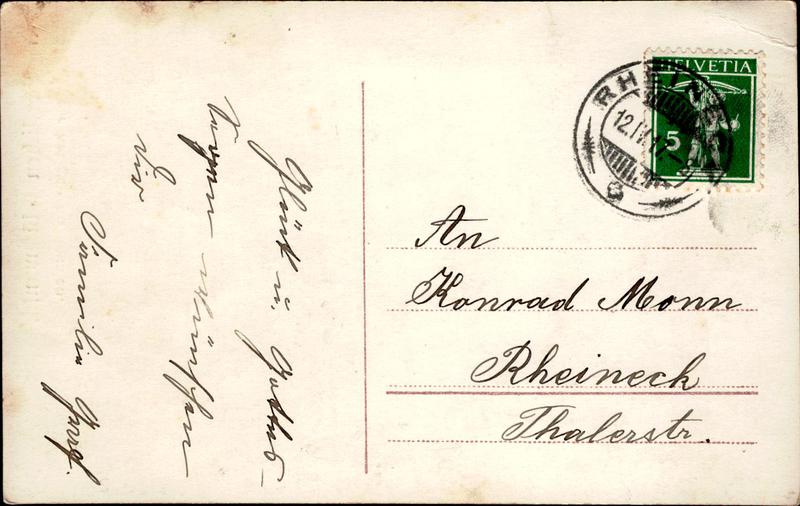 Glück u. Gottes-
Segen wünschen
Dir
Familie
HELVETIA
5
RHEINECK
12.IV.17-
An
Konrad Monn
Rheineck
Thalerstr.